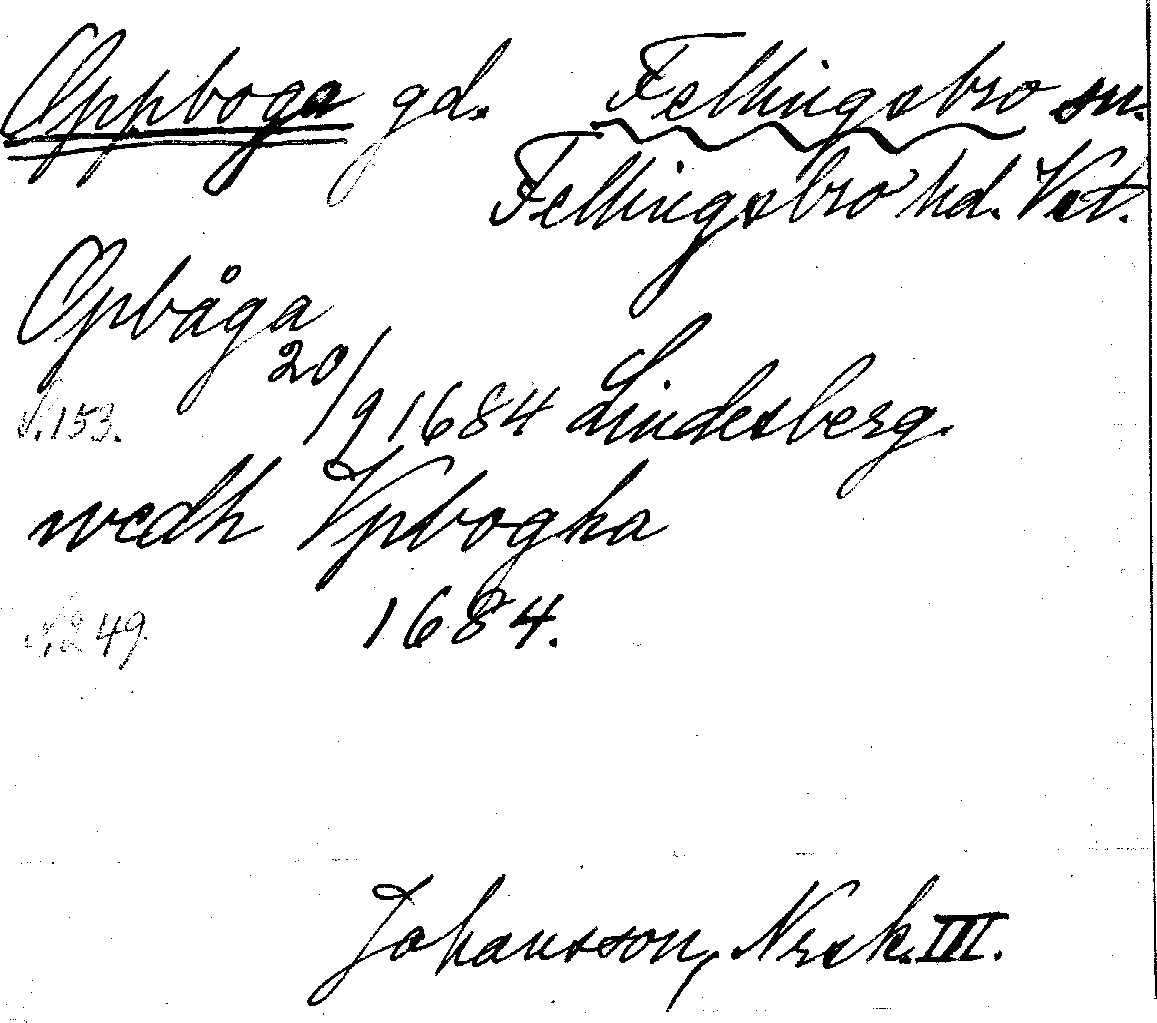 Oppboga gd. Fellingsbro sn.
Fellingsbro hd. Vst.
Opbåga
S. 153. 20/9 1684 Lindesberg.
wedh Vpbogha
S. 249. 1684.
Johansson, Nrsk. III.